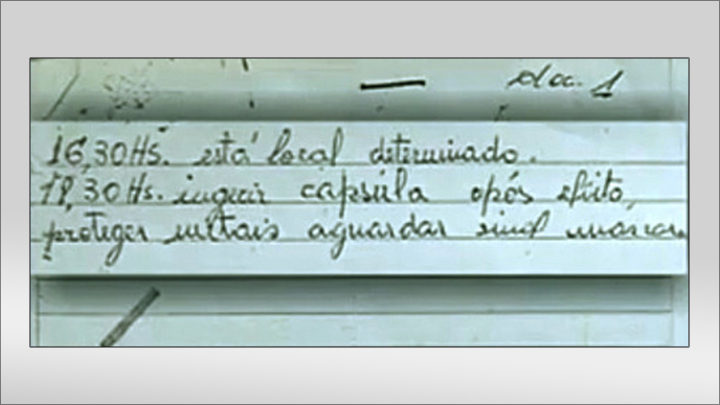 doc. 1
16,30 Hs. está local determinado.
18,30 Hs. inguir capsúla após efeito,
proteger metais aguardar sinal máscara